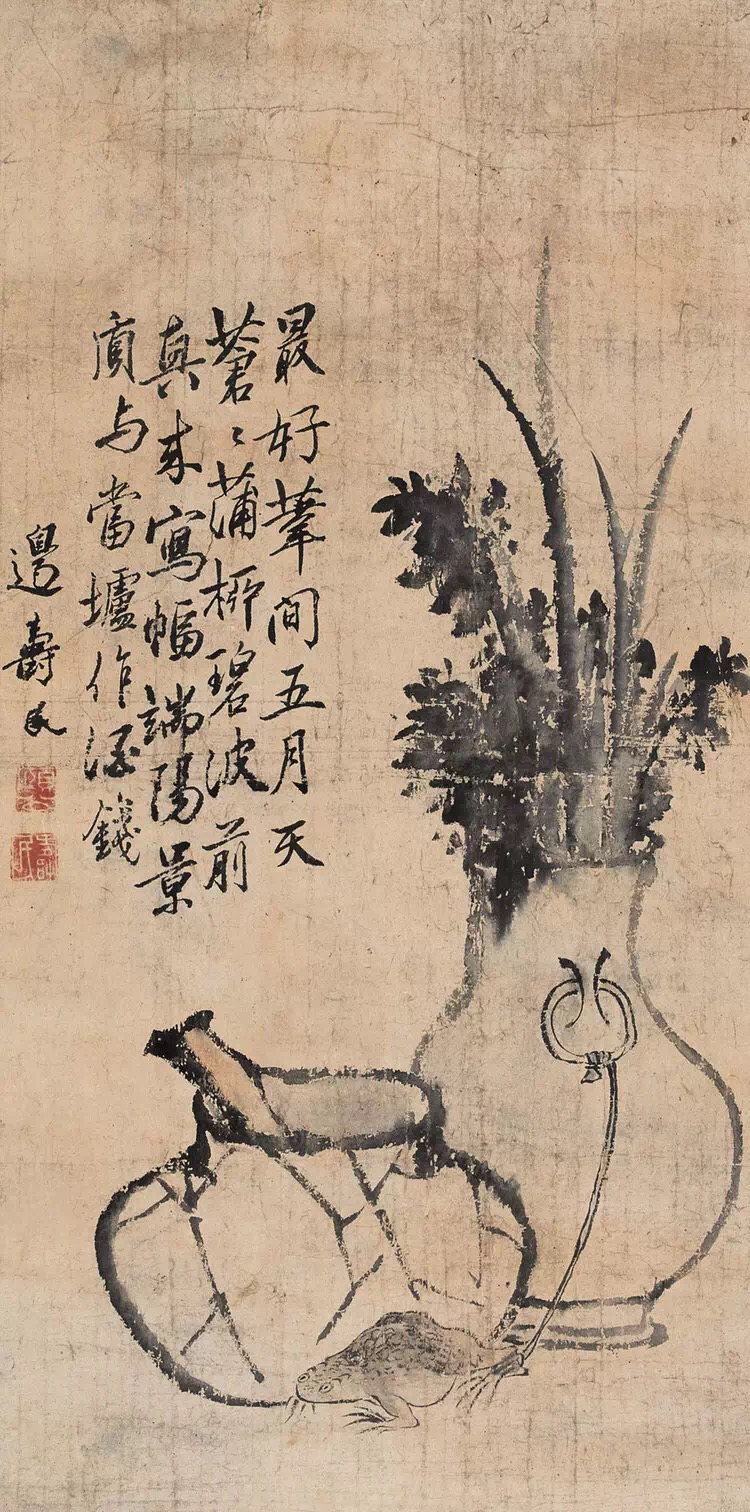 最好葦間五月天
蒼〻蒲柳碧波前
興来寫幅端陽景
賣与當壚作酒錢
邊壽民